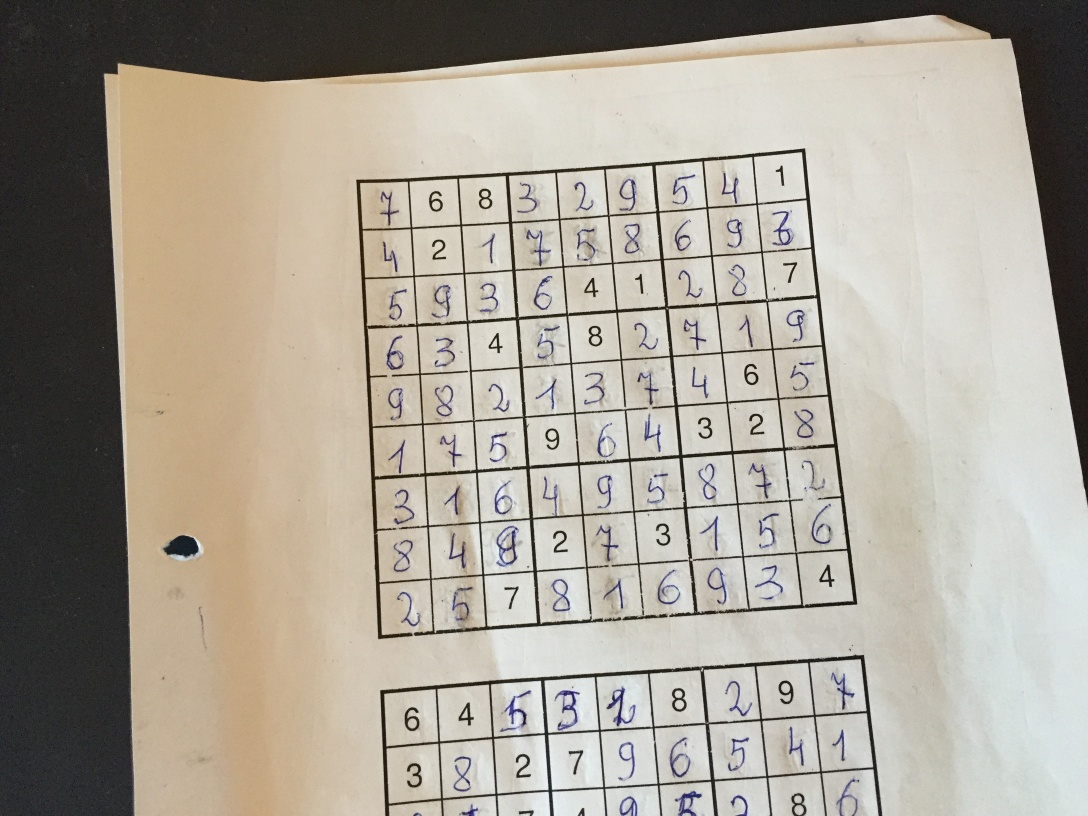 7 6 8 3 2 9 5 4 1
4 2 1 7 5 8 6 9 3
5 9 3 6 4 1 2 8 7
6 3 4 5 8 2 7 1 9
9 8 2 1 3 7 4 6 5
1 7 5 9 6 4 3 2 8
3 1 6 4 9 5 8 7 2
8 4 9 2 7 3 1 5 6
2 5 7 8 1 6 9 3 4
6 4 5 3 8 2 9 7
3 8 2 7 9 6 5 4 1
9 5 2 8 6